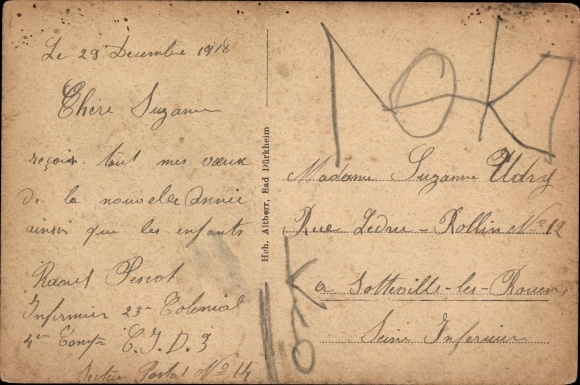 Le 29 Decembre 1918
Chère Suzanne
reçois tout mes vœux
de la nouvelle année
ainsi que les enfants
Raoul
Infirmier 23e Colonial
4eme Comp C.I.D. 3
Secteur Postal No 14
Heh. Altherr, Bad Dürkheim
Madame Suzanne Udry
Rue Ledru-Rollin No 12
a Sotteville-les-Rouen
Seine Inferieur